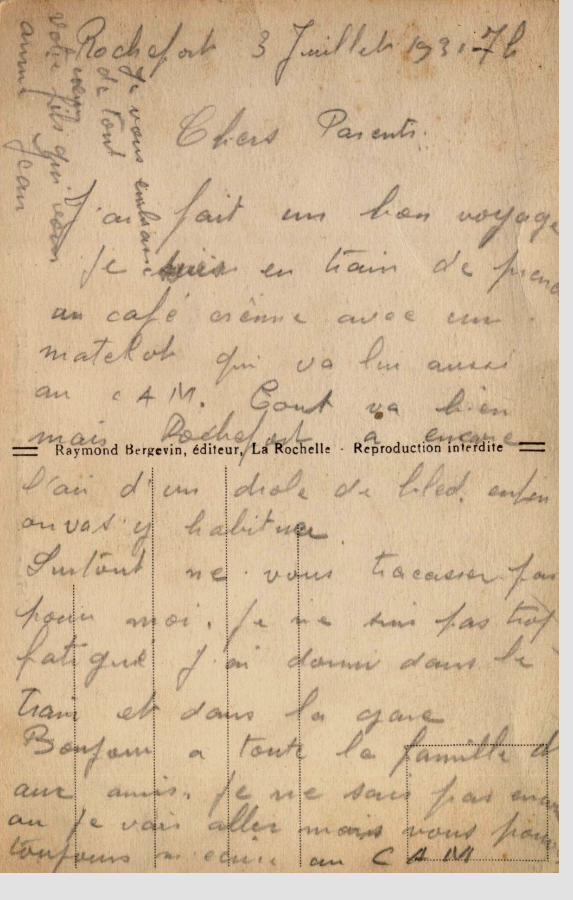 Rochefort 3 Juillet 193. 7h
Chers Parents.
J'ai fait un bon voyage
je suis en train de prend
un café crème avec un
matelot qui va lui aussi
au CAM. Tout va bien
mais Rochefort a encore
Raymond Bergevin, éditeur, La Rochelle - Reproduction interdite
l'air d'un drole de bled, enfin
on vas y habituer
Surtout ne vous tracasser pas
pour moi. je ne suis pas trop
fatigué j'ai dormi dans le
train et dans la gare
Bonjour a toute la famille
aux amis. je ne sais pas encor
ou je vais aller mais vous pouv
toujours m'ecrire au CAM
Je vous embrasse
de tout
votre fils qui vous
aime Jean